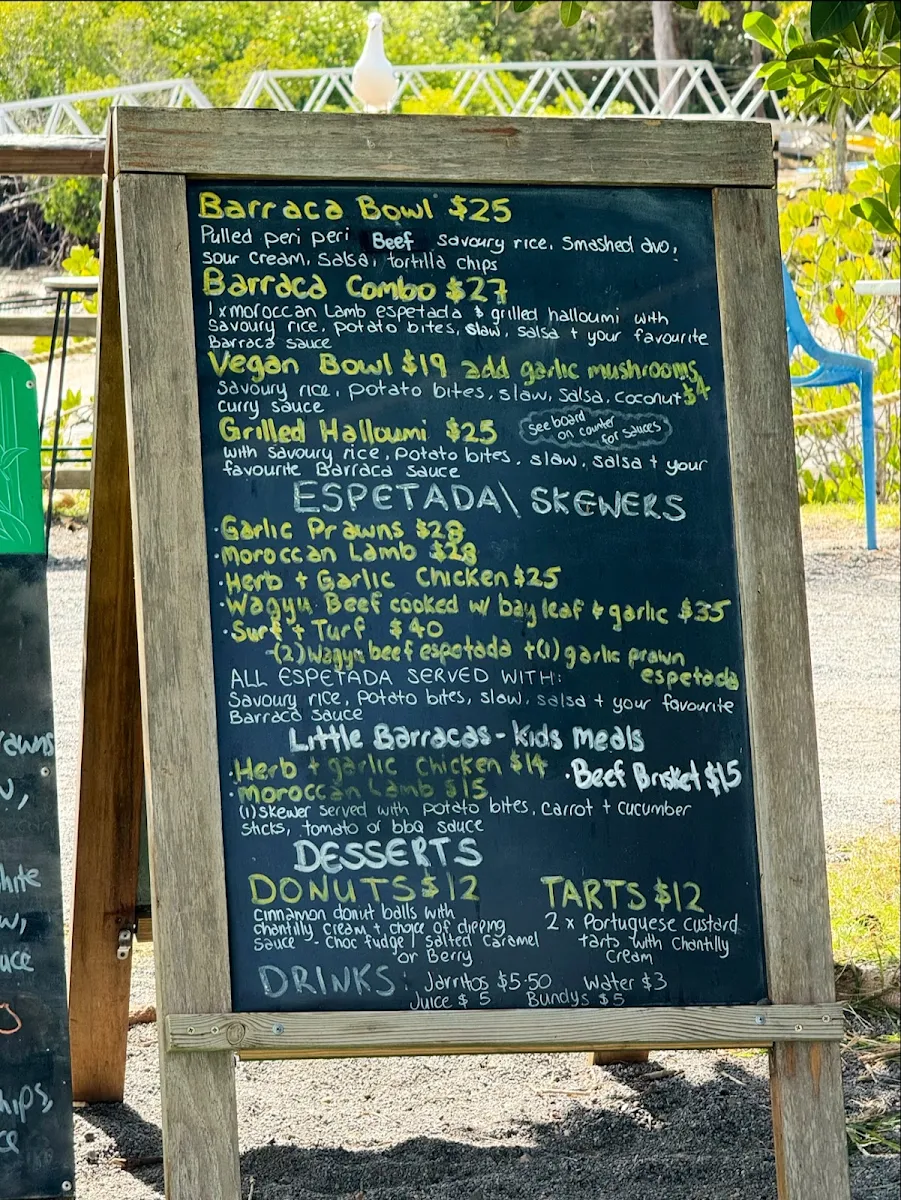 Barraca Bowl $25
Pulled peri peri Beef savoury rice, smashed avo,
sour cream, salsa, tortilla chips
Barraca Combo $27
1 x moroccan Lamb espetada & grilled halloumi with
savoury rice, potato bites, slaw, salsa + your favourite
Barraca sauce
Vegan Bowl $19 add garlic mushrooms $4
savoury rice, potato bites, slaw, salsa, coconut
curry sauce
Grilled Halloumi $25
see board
on counter
for sauces
with savoury rice, potato bites, slaw, salsa + your
favourite Barraca sauce
ESPETADA\ SKEWERS
·Garlic Prawns $28
·Moroccan Lamb $28
·Herb + Garlic Chicken $25
·Wagyu Beef cooked w/ bay leaf & garlic $35
·Surf + Turf $40
-(2) Wagyu beef espetada +(1) garlic prawn
espetada
ALL ESPETADA SERVED WITH:
Savoury rice, potato bites, slaw, salsa + your favourite
Barraca sauce
Little Barracas - Kids Meals
·Herb + garlic chicken $14
·Beef Brisket $15
·Moroccan Lamb $15
(1) skewer served with potato bites, carrot + cucumber
sticks, tomato or bbq sauce
DESSERTS
DONUTS $12
cinnamon donut balls with
chantilly cream + choice of dipping
sauce - choc fudge / salted caramel
or Berry
TARTS $12
2 x Portuguese custard
tarts with Chantilly
Cream
DRINKS: Jarritos $5.50 Water $3
Juice $5 Bundys $5